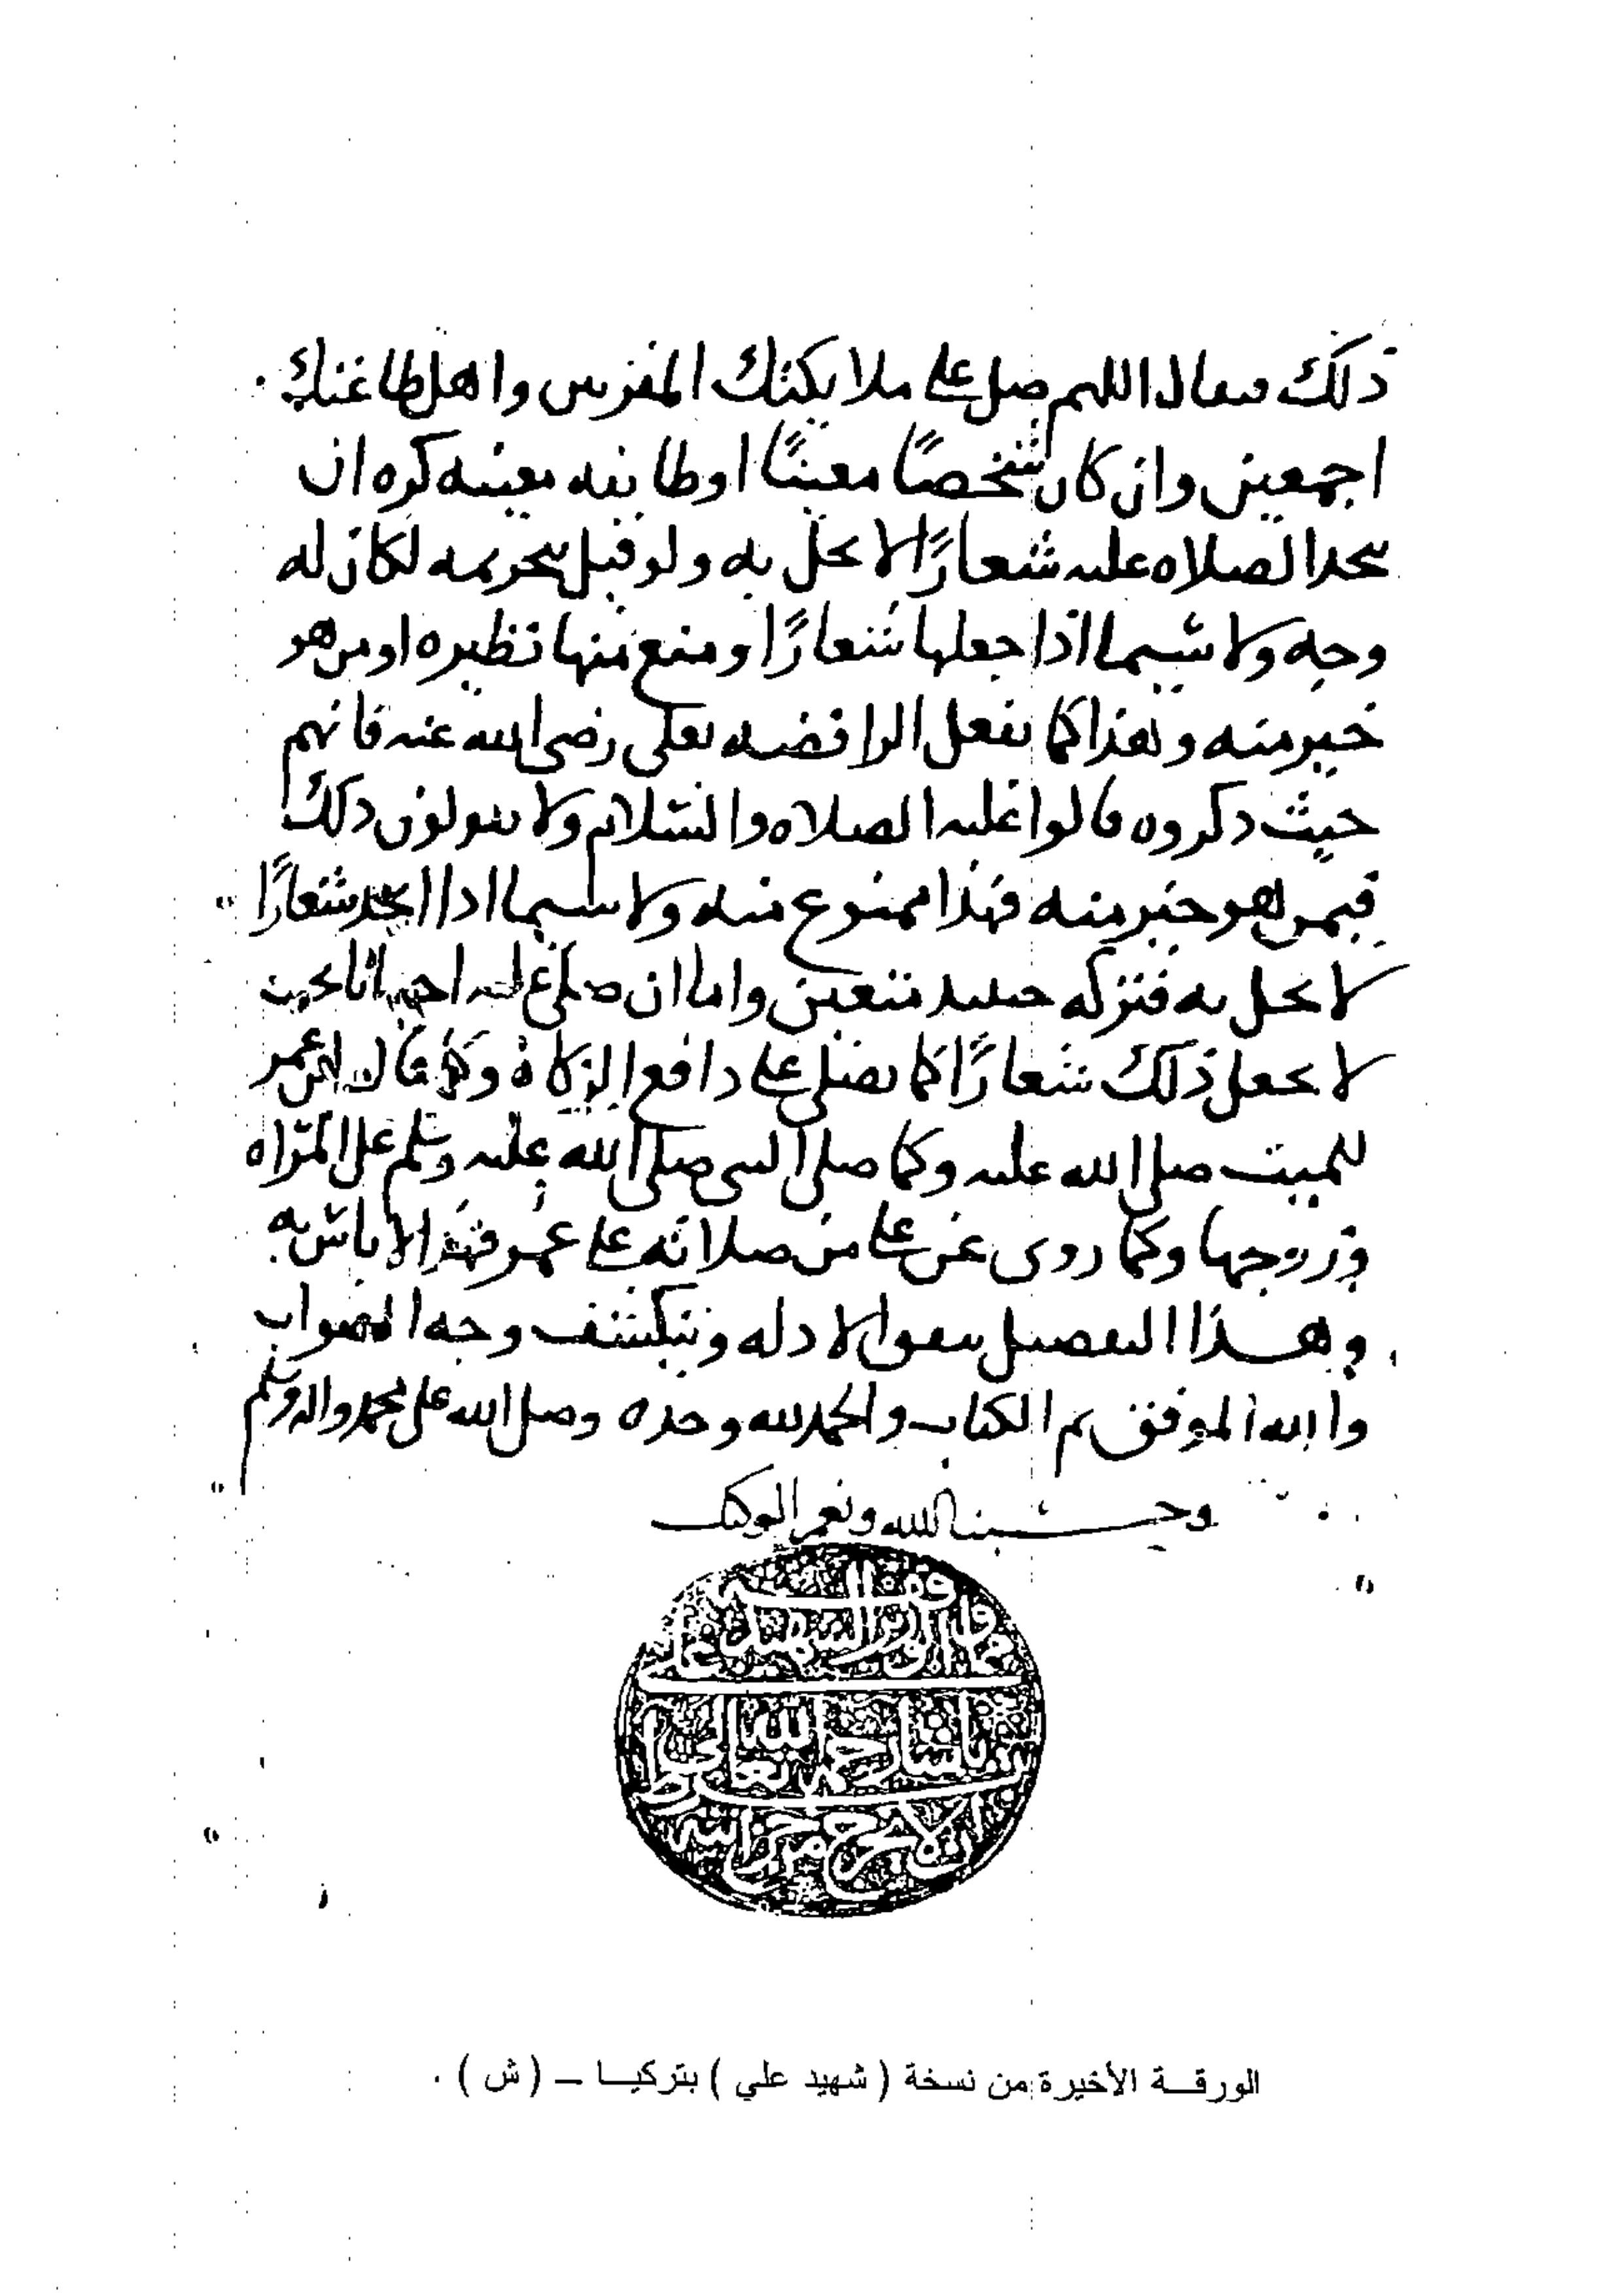 ذلك فيقال اللهم صل على ملايكتك المقربين واهل طاعتك
اجمعين وان كان شخصًا معينًا او طايفه معينه كره ان
يتخذ الصلاه عليه شعارًا لا يخل به ولو قيل بتحريمه لكان له
وجه ولا سيما اذا جعلها شعارًا ومنع منها نظيره او من هو
خير منه وهذا كما تفعل الرافضه بعلي رضي الله عنه فانهم
حيث ذكروه قالوا عليه الصلاه والسلام ولا يقولون ذلك
فيمن هو خير منه فهذا ممنوع منه ولا سيما اذا اتخذ شعارًا
لا يخل به فتركه حينيذ متعين واما ان صلى عليه احيانا بحيث
لا يجعل ذلك شعارًا كما يصلى على دافع الزكاة وكما قال ابن عمر
للميت صلى الله عليه وكما صلى النبي صلى الله عليه وسلم على المراه
وزوجها وكما روى عن علي من صلاته على عمر فهذا لا باس به
وهذا التفصيل تتفق الادله وينكشف وجه الصواب
والله الموفق تم الكتاب والحمد لله وحده وصلى الله على محمد واله وسلم
وحسبنا الله ونعم الوكيل
الوزير الشهيد علي
باشا رحمه الله تعالى
الورقة الأخيرة من نسخة ( شهيد علي ) بتركيا – ( ش ) .